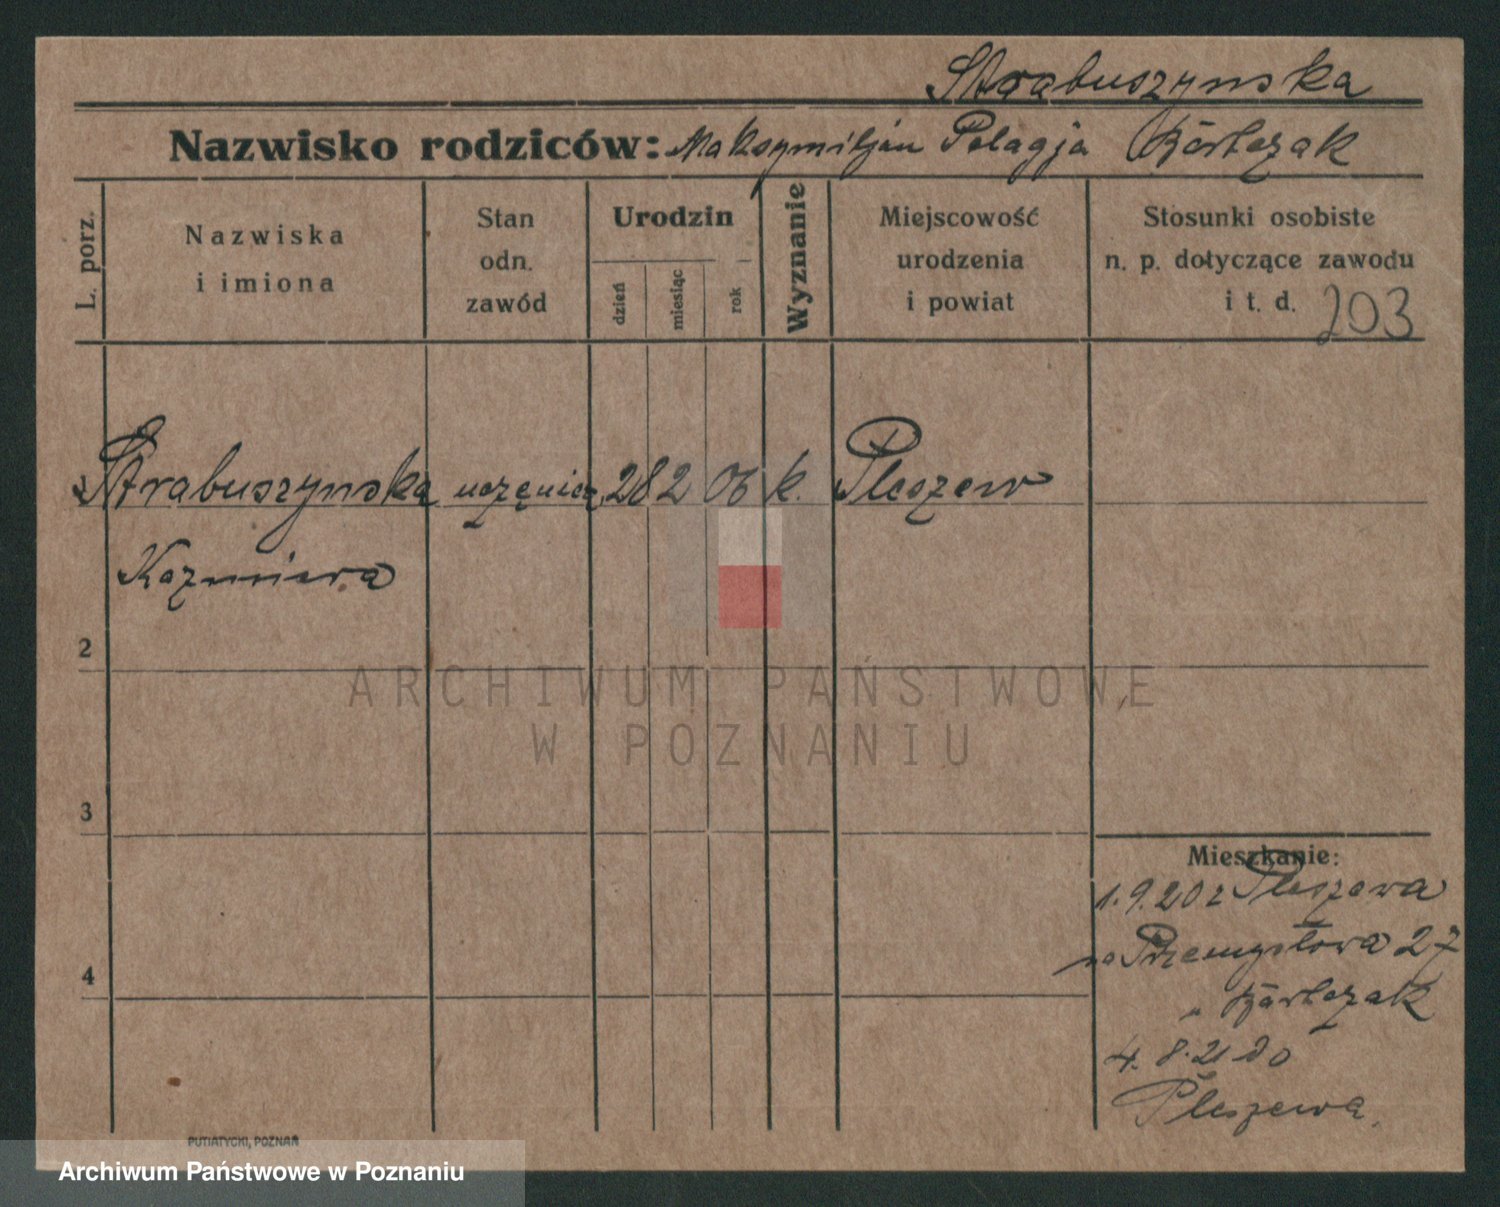 Strabuszynska
Nazwisko rodziców: Maksymiljan Pelagja Bartczak
L. porz.
Nazwiska
i imiona
Stan
odn.
zawód
Urodzin
dzień
miesiąc
rok
Wyznanie
Miejscowość
urodzenia
i powiat
Stosunki osobiste
n. p. dotyczące zawodu
i t. d. 203
Strabuszynska uczenica 28 2 06 k. Pleszew
Kazmiera
2
3
4
Mieszkanie:
1.9.20 z Pleszewa
na Przemysłowa 27
u Bartczak
4. 8. 21 do
Pleszewa.
ARCHIWUM PAŃSTWOWE
W POZNANIU
PUTIATYCKI, POZNAŃ
Archiwum Państwowe w Poznaniu